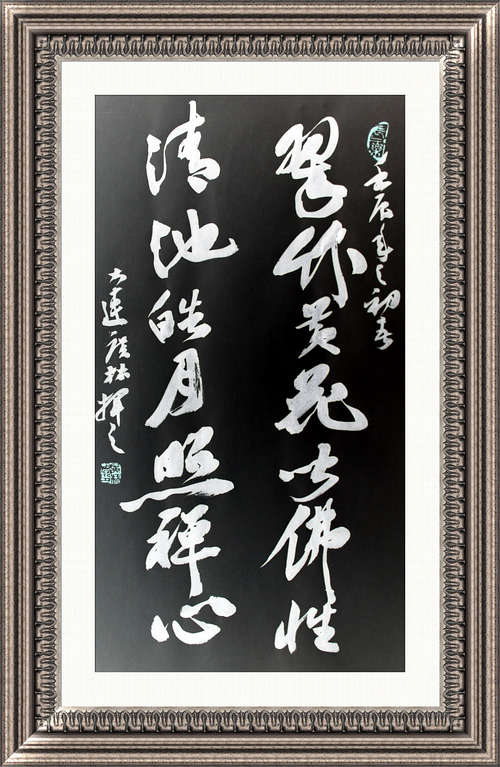 壬辰年之初春
翠竹黄花皆佛性
清池皓月照禅心
大連廣林揮之